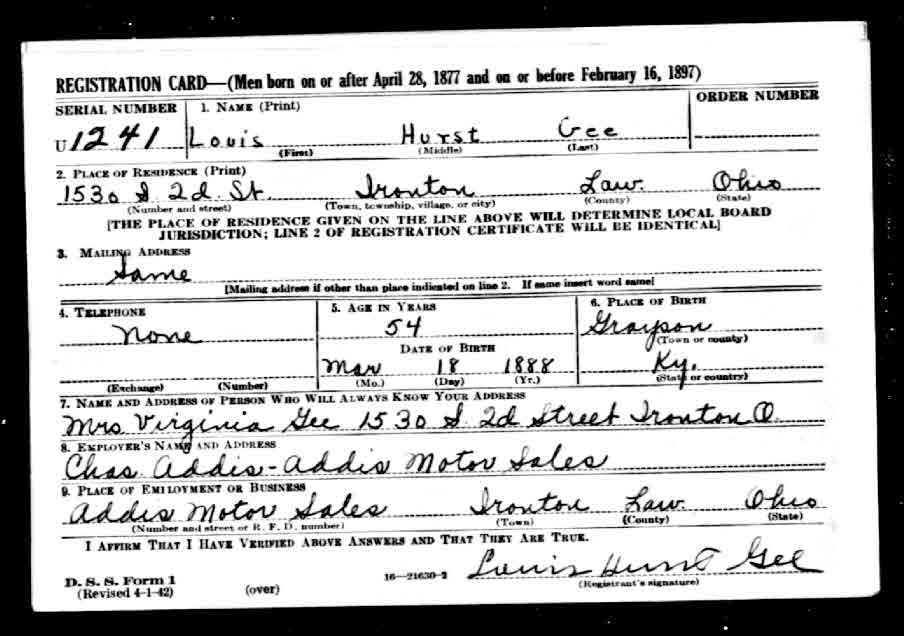 REGISTRATION CARD—(Men born on or after April 28, 1877 and on or before February 16, 1897)
SERIAL NUMBER 1. NAME (Print) ORDER NUMBER
U 1241 Louis Hurst Gee
(First) (Middle) (Last)
2. PLACE OF RESIDENCE (Print)
1530 S. 2d. St. Ironton Law. Ohio
(Number and street) (Town, township, village, or city) (County) (State)
[THE PLACE OF RESIDENCE GIVEN ON THE LINE ABOVE WILL DETERMINE LOCAL BOARD
JURISDICTION; LINE 2 OF REGISTRATION CERTIFICATE WILL BE IDENTICAL]
3. MAILING ADDRESS
Same
[Mailing address if other than place indicated on line 2. If same insert word same]
4. TELEPHONE 5. AGE IN YEARS 6. PLACE OF BIRTH
None 54 Grayson
(Town or county)
DATE OF BIRTH
Mar 18 1888 Ky.
(Exchange) (Number) (Mo.) (Day) (Yr.) (State or country)
7. NAME AND ADDRESS OF PERSON WHO WILL ALWAYS KNOW YOUR ADDRESS
Mrs. Virginia Gee 1530 S. 2d Street Ironton O.
8. EMPLOYER'S NAME AND ADDRESS
Chas. Addis - Addis Motor Sales
9. PLACE OF EMPLOYMENT OR BUSINESS
Addis Motor Sales Ironton Law. Ohio
(Number and street or R. F. D. number) (Town) (County) (State)
I AFFIRM THAT I HAVE VERIFIED ABOVE ANSWERS AND THAT THEY ARE TRUE.
Louis Hurst Gee
D. S. S. Form 1 16—21630-2 (Registrant's signature)
(Revised 4-1-42) (over)